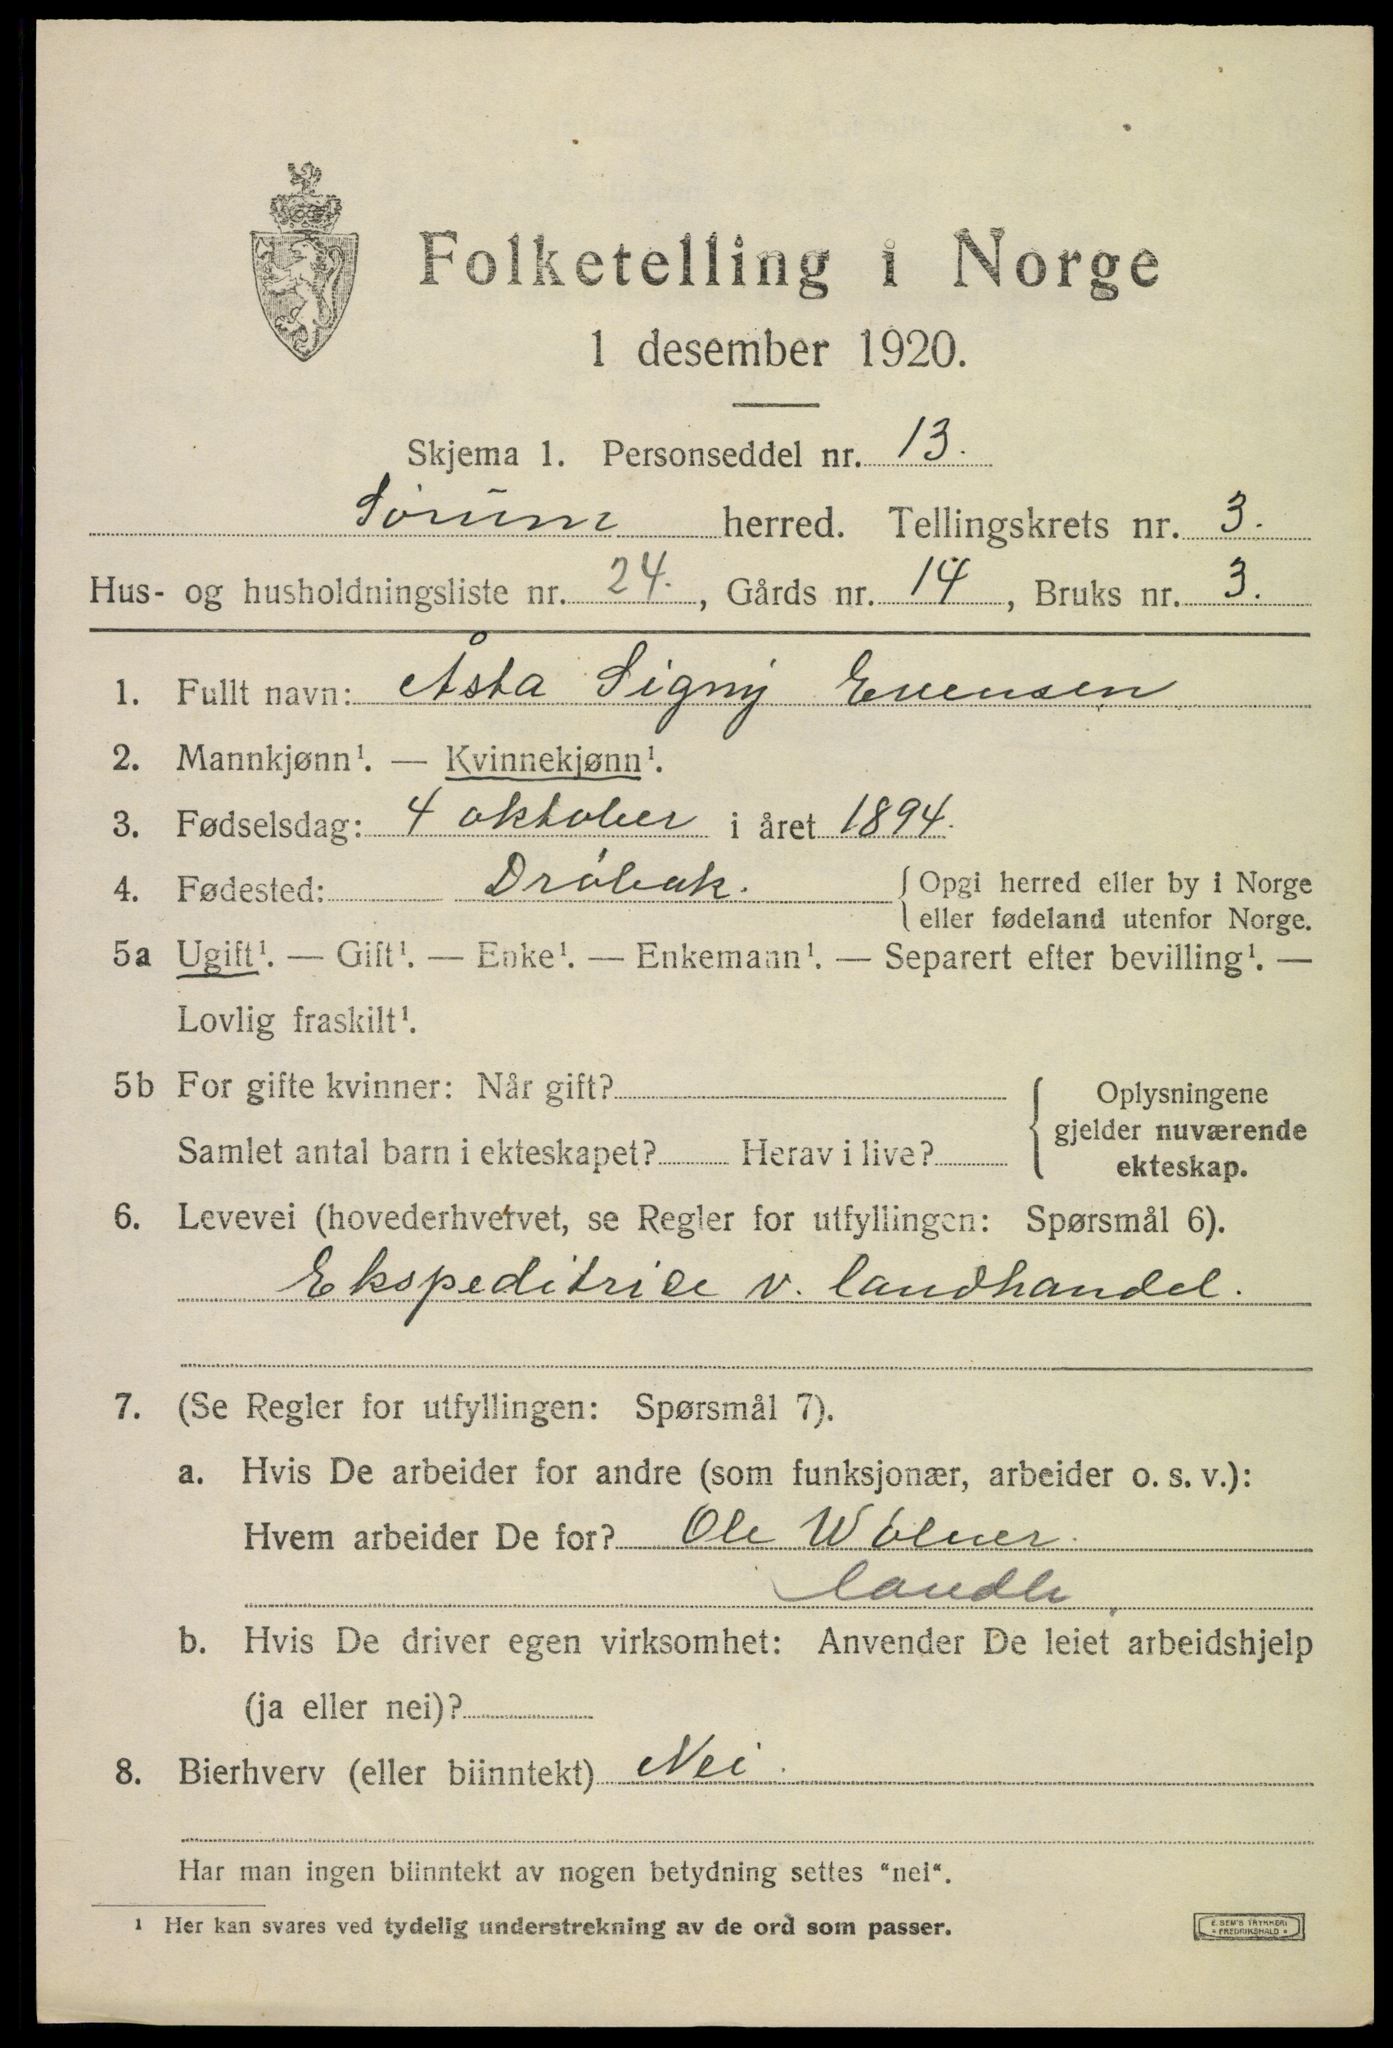 Folketelling i Norge
1 desember 1920.
Skjema 1. Personseddel nr. 13.
Sørum herred. Tellingskrets nr. 3.
Hus- og husholdningsliste nr. 24., Gårds nr. 14, Bruks nr. 3.
1. Fullt navn: Åsta Signy Evensen
2. Mannkjønn¹. — Kvinnekjønn¹.
3. Fødselsdag: 4 oktober i året 1894.
4. Fødested: Drøbak. { Opgi herred eller by i Norge
eller fødeland utenfor Norge.
5a Ugift¹. — Gift¹. — Enke¹. — Enkemann¹. — Separert efter bevilling¹. —
Lovlig fraskilt¹.
5b For gifte kvinner: Når gift?
Samlet antal barn i ekteskapet? Herav i live?
Oplysningene
gjelder nuværende
ekteskap.
6. Levevei (hovederhvervet, se Regler for utfyllingen: Spørsmål 6).
Ekspeditrise v. landhandel.
7. (Se Regler for utfyllingen: Spørsmål 7).
a. Hvis De arbeider for andre (som funksjonær, arbeider o. s. v.):
Hvem arbeider De for? Ole Wølner.
landh
b. Hvis De driver egen virksomhet: Anvender De leiet arbeidshjelp
(ja eller nei)?
8. Bierhverv (eller biinntekt) Nei.
Har man ingen biinntekt av nogen betydning settes "nei".
¹ Her kan svares ved tydelig understrekning av de ord som passer.
E. SEM'S TRYKKERI
* FREDRIKSHALD *